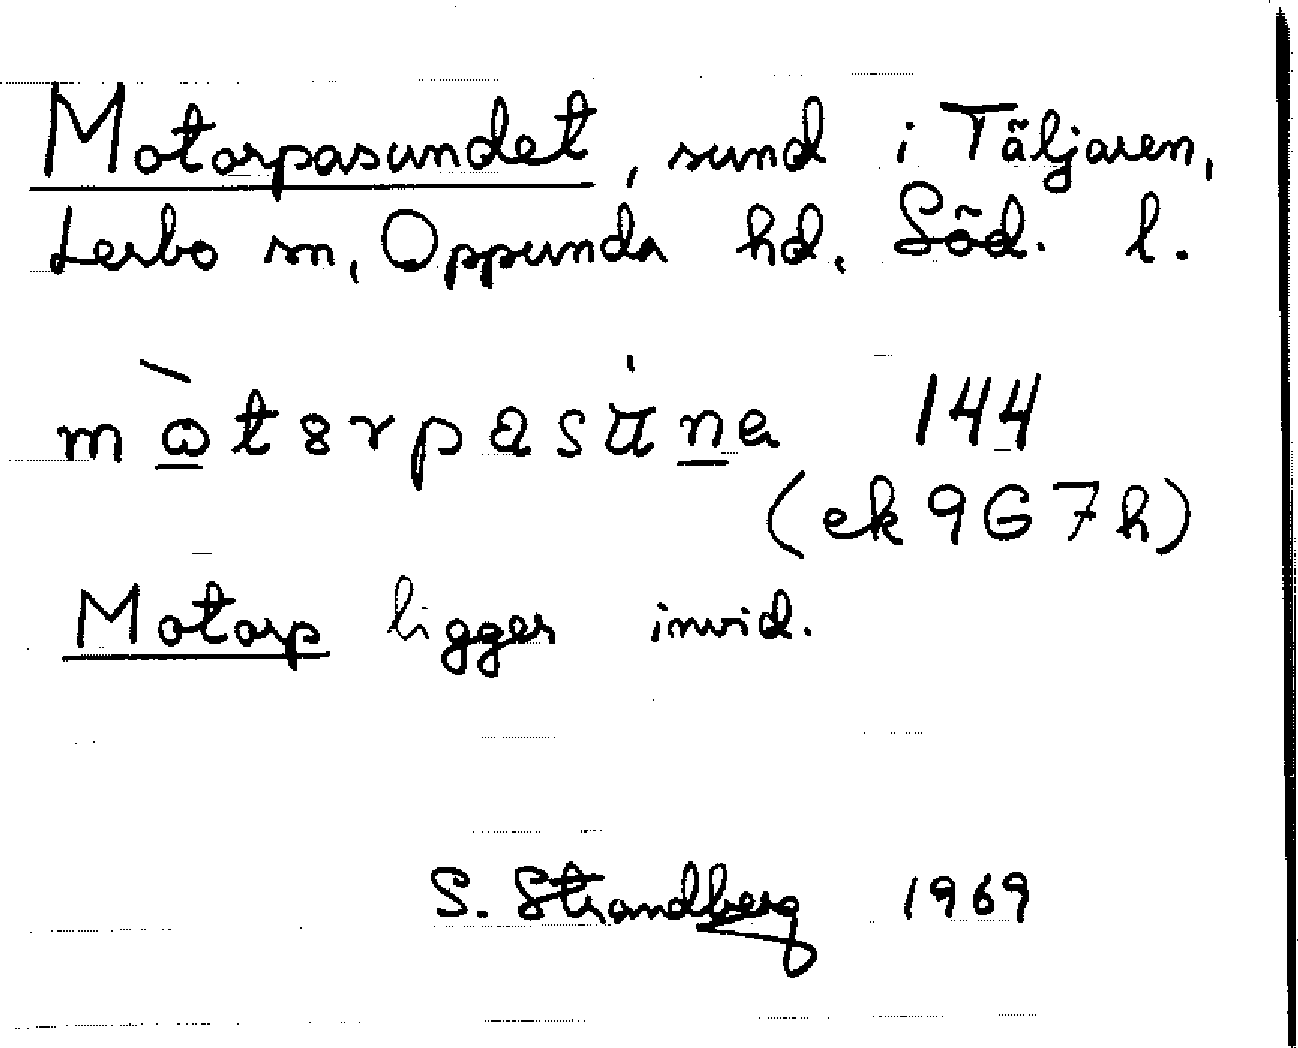 Motorpasundet, sund i Täljaren,
Lerbo sn, Oppunda hd, Söd. l.
144
(ek 9G7h)
Motorp ligger invid.
S. Strandberg 1969